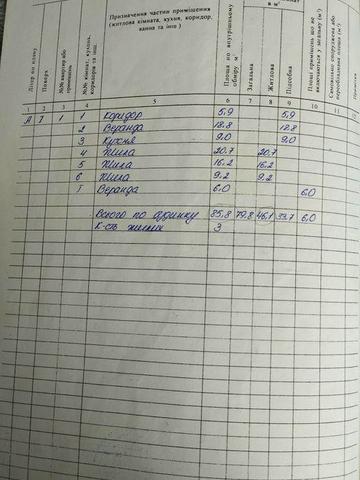 Літер по плану
Поверх
№№ кімнат, кухонь, коридорів та інш.
Призначення частин приміщення
(житлова кімната, кухня, коридор,
ванна та інш)
Площа по внутрішньому обміру м²
в м²
Загальна
Житлова
Підсобна
1 2 3 4 5 6 7 8 9 10 11 12
А I 1 1 Коридор 5,9 5,9
2 Веранда 18.8 18.8
3 Кухня 9.0 9,0
4 Жила 20,7 20,7
5 Жила 16.2 16,2
6 Жила 9,2 9,2
I Веранда 6.0 6,0
Всього по будинку 85,8 79.8 46,1 33.7 6,0
К-сть жилих 3